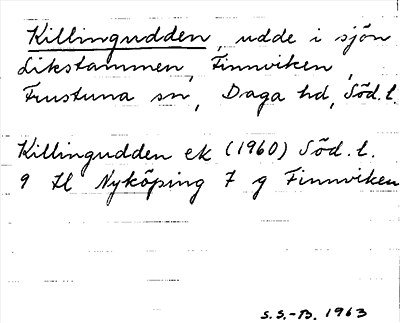 Killingudden, udde i sjön
Likstammen, Finnviken,
Frustuna sn, Daga hd, Söd. l.
Killingudden ek (1960) Söd. l.
9 H Nyköping 7 g Finnviken
S.S.-B. 1963